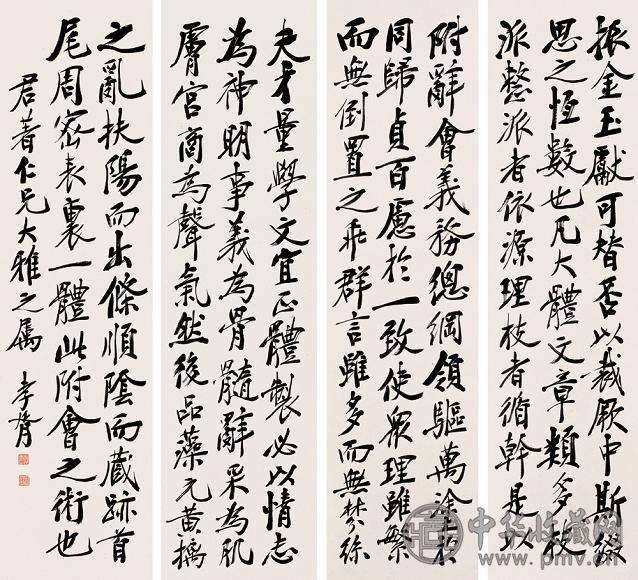 振金玉獻可替否以裁厥中斯綴
思之恆數也凡大體文章類多枝
派整派者依源理枝者循幹是以
附辭會義務總綱領驅萬塗於
同歸貞百慮於一致使眾理雖繁
而無倒置之乖群言雖多而無棼絲
夫才量學文宜正體製必以情志
為神明事義為骨髓辭采為肌
膚宮商為聲氣然後品藻元黃摛
之亂扶陽而出條順陰而藏跡首
尾周密表裏一體此附會之術也
君著仁兄大雅之屬 孝胥
中华收藏网
www.pmv.cn